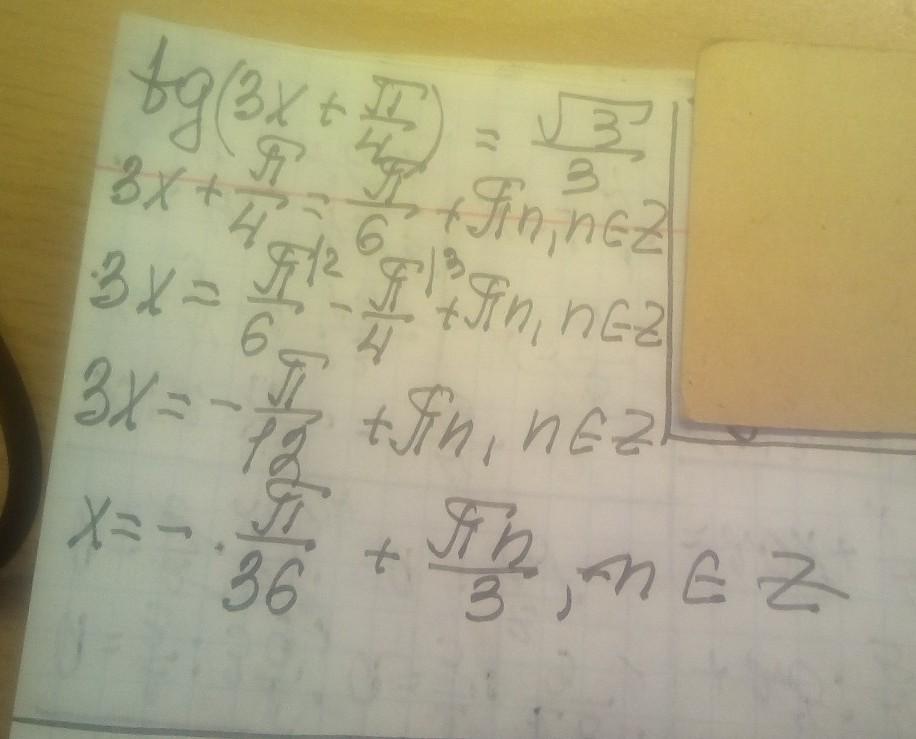 tg(3x + π/4) = √3/3
3x + π/4 = π/6 + πn, n∈Z
3x = π/6|2 - π/4|3 + πn, n∈Z
3x = - π/12 + πn, n∈Z
x = - π/36 + πn/3, n∈Z